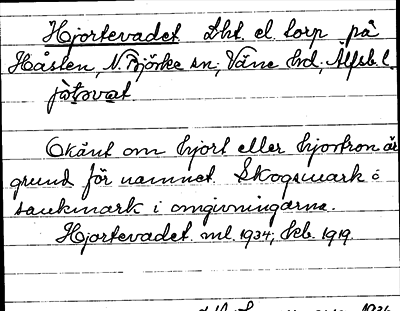 Hjortevadet Lht. el. torp på
Håsten, N. Björke sn, Väne hd, Älfsb. l.
jàtovat.
Okänt om hjort eller hjortron är
grund för namnet. Skogsmark o
sankmark i omgivningarna.
Hjortevadet ml. 1934; kb. 1919.
1934